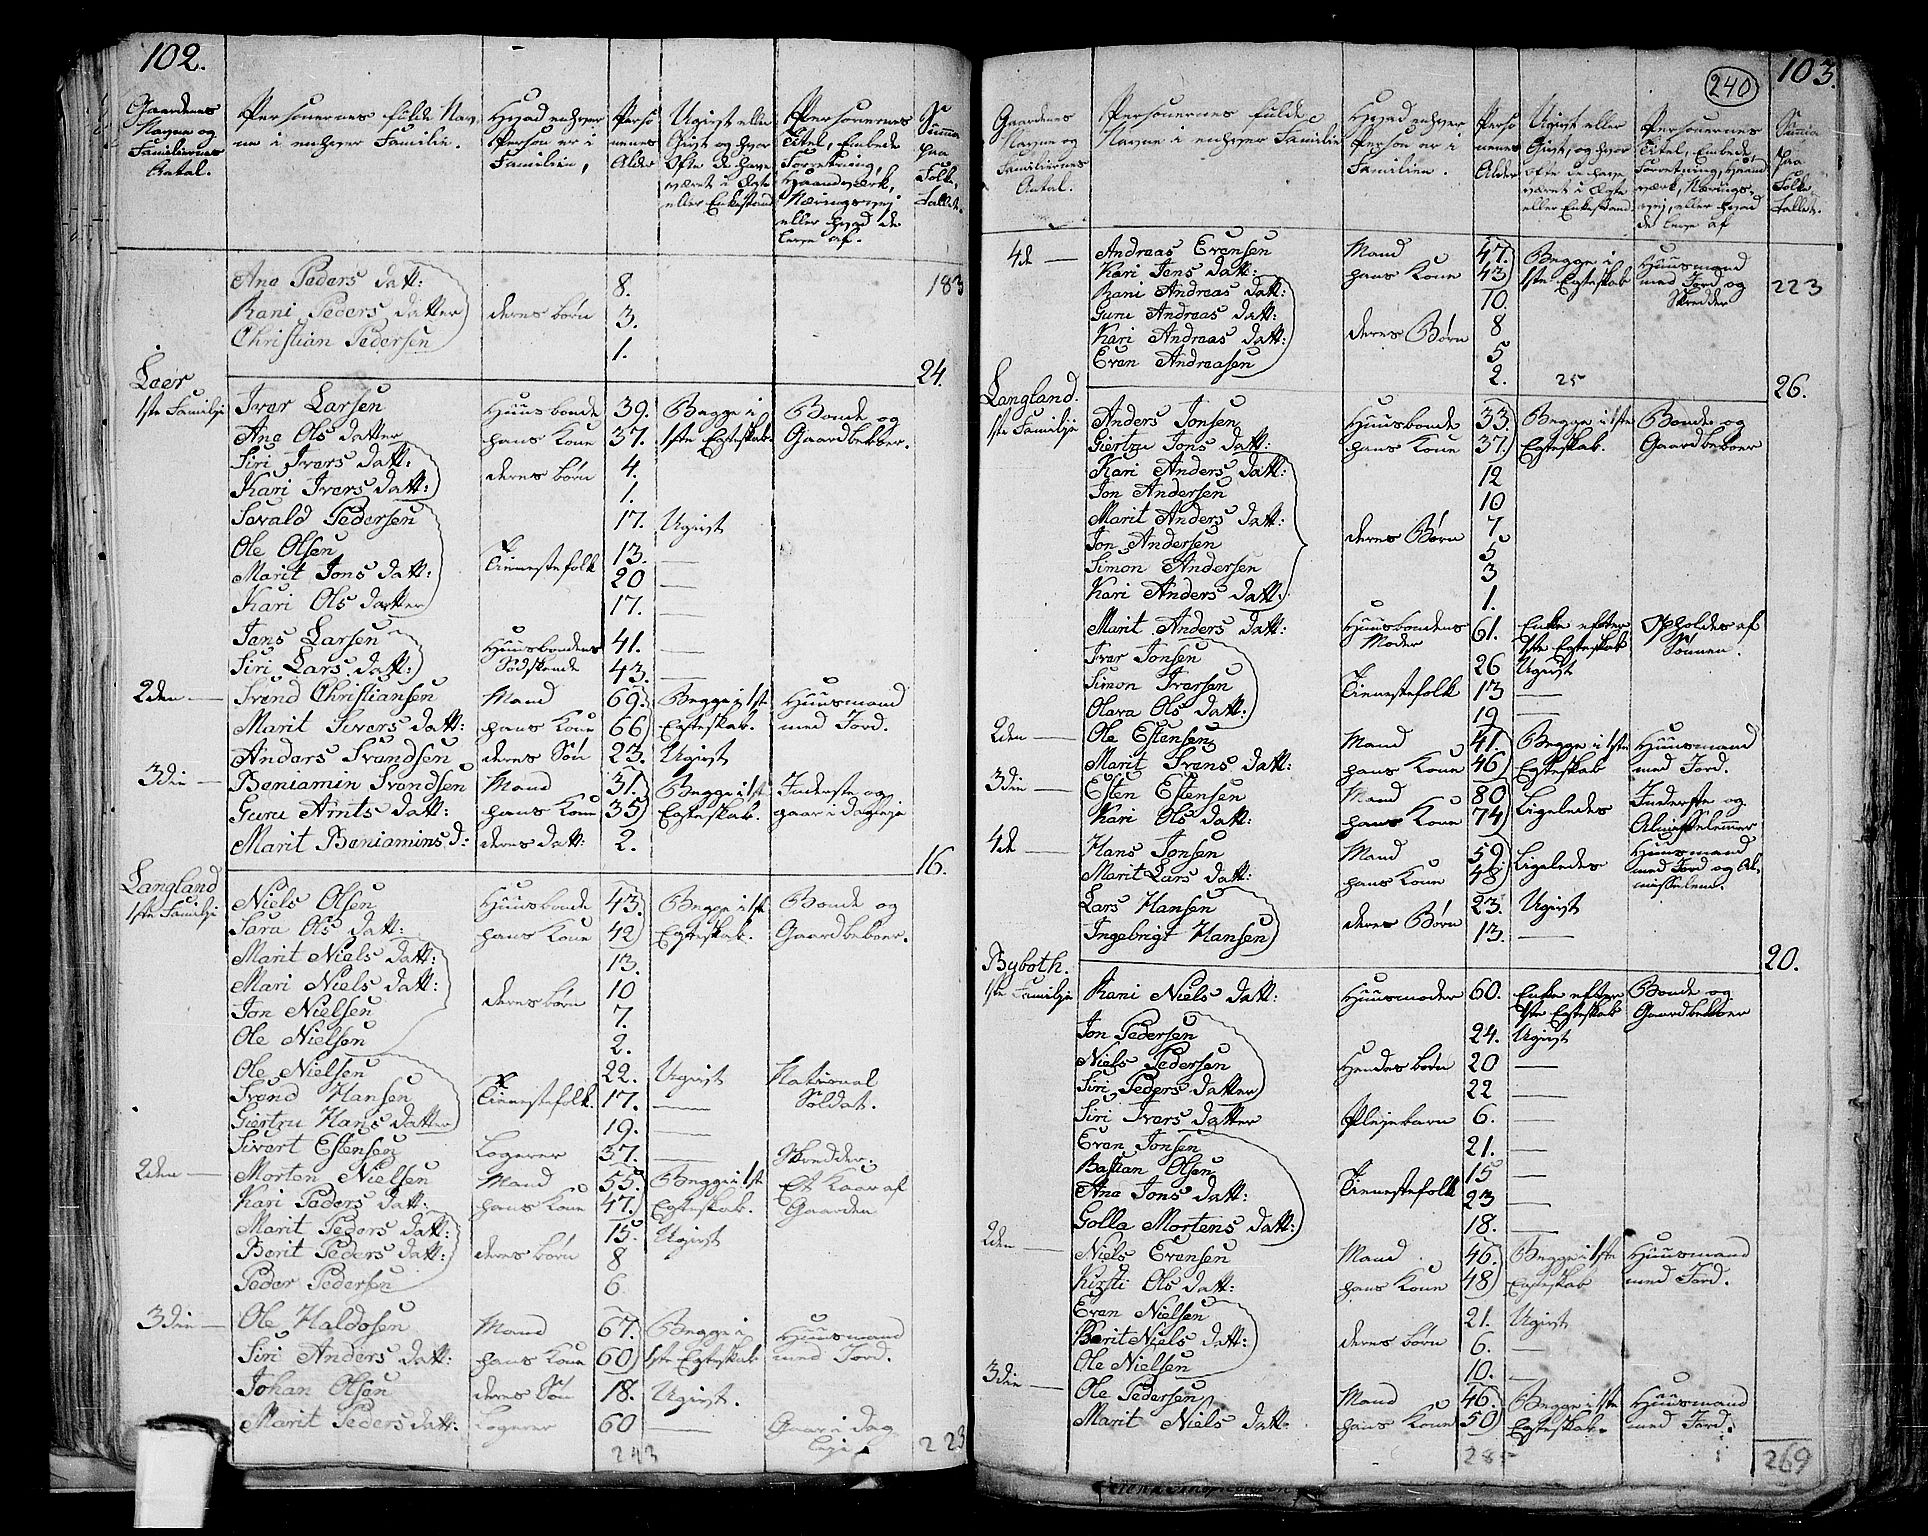 102.
Gaardenes Navne og Familiernes Antal.
Personernes fulde Navne i enhver Familie.
Hvad enhver Person er i Familien,
Personenes Alder
Ugivt eller Givt og hvor Ofte de have været i Ægte eller Enkestand
Personernes Titel, Embede Forretning, Haandverk, Næringsvej eller hvad de leve af.
Suma paa Folke Tallet.
Ana Peders datt: 8. 183
Rani Peders datter deres børn 3.
Christian Pedersen 1.
24.
Leer
1ste Familje Iver Larsen Huusbonde 39. Begge i Bonde og
Ana Ols datter hans Kone 37. 1ste Egteskab. Gaardbeboer.
Siri Ivers datt: deres børn 4.
Kari Ivers datt: 1.
Savald Pedersen 17. Ugivt
Ole Olsen Tienestefolk 13. —
Marit Jons datt: 20 —
Kari Ols datter 17. —
Jens Larsen Huusbondens 41. —
Siri Lars datt: Södskende 43. —
2den — Svend Christiansen Mand 69. Begge i 1ste Huusmand
Marit Sivers datt: hans Kone 66) Egteskab. med Jord.
Anders Svendsen deres Søn 23. Ugivt
3die — Beniamin Svendsen Mand 31. Begge i 1st Inderste og
Guru Arnts datt: hans Kone 35) Egteskab. gaar i dagleje
Marit Beniamins d: deres datt: 2.
16.
Langland
1ste Familje Niels Olsen Huusbonde 43. Begge i 1ste Bonde og
Sara Ols datt: hans Kone 42) Egteskab. Gaardbeboer.
Marit Niels datt: 13.
Mari Niels datt: deres børn 10
Jon Nielsen 7.
Ole Nielsen 2.
Ole Nielsen 22. Ugivt National
Svend Hansen Tienestefolk. 17. — Soldat.
Giertru Hans datter 19. —
Sivert Estensen Logerer 37. — Skredder.
2den — Morten Nielsen Mand 55. Begge i 1st Et Kaar af
Kari Peders datt: hans Kone 47.) Egteskab. Gaarden
Marit Peders datt: 15. Ugivt
Berit Peders datt: deres børn 8
Peder Pedersen 6
3die — Ole Haldosen Mand 67. Begge i Huusmand
Siri Anders datt: hans Kone 60) 1ste Egteskab med Jord.
Johan Olsen deres Søn 18. Ugivt.
Marit Peders datt: Logerer 60 — Gaar i dag
leje
243 223
240
103.
Gaardenes Navne og Familiernes Antal.
Personernes fulde Navne i enhver Familie
Hvad enhver Person er i Familien.
Personenes Alder
Ugivt eller Givt, og hvor ofte de have været i Ægte eller Enkestand
Personernes Titel, Embede, Forretning, Haandverk, Næringsvej, eller hvad de leve af
Suma paa Folke Tallet.
4de — Andreas Evensen Mand 47. Begge i Huusmand
Kari Jens datt: hans Kone 43) 1ste Egteskab med Jord og 223
Rani Andreas datt: 10. Skredder
Guru Andreas datt: 8
Kari Andreas datt: deres Børn 5
Even Andreasen 2. 25 26.
Langland.
1ste Familje Anders Jonsen Huusbonde 33. Begge i 1ste Bonde og
Giertru Jons datt: hans Kone 37) Egteskab. Gaardbeboer
Kari Anders datt: 12
Jon Andersen 10
Marit Anders datt: 7
Jon Andersen deres Børn 5
Simon Andersen 3
Kari Anders datt: 1.
Marit Anders datt: Huusbondens 61. Enke efter Opholdes af
Moder 1ste Egteskab Sönnen.
Iver Jonsen 26 Ugivt
Simon Iversen Tienestefolk 13 —
Olava Ols datt: 19 —
2den — Ole Estensen Mand 41. Begge i 1ste Huusmand
Marit Svens datt: hans Kone 46) Egteskab med Jord.
3die — Esten Estensen Mand 80 Ligeledes Inderste og
Kari Ols datt: hans Kone 74) Almisselemmer
4de — Hans Jonsen Mand 59 Ligeledes Huusmand
Marit Lars datt: hans Kone 48) med Jord og Al-
misselem.
Lars Hansen deres Børn 23. Ugivt
Ingebrigt Hansen 13. —
20.
Byboth.
1ste Familje Rani Niels datt: Huusmoder 60. Enke efter Bonde og
1ste Egteskab Gaardbeboer
Jon Pedersen 24. Ugivt
Niels Pedersen Hendes børn 20 —
Siri Peders datter 22 —
Siri Ivers datter Plejebarn 6. —
Even Jonsen 21. —
Bastian Olsen Tienestefolk 15 —
Ana Jons datt: 23 —
Golla Mortens datt: 18. —
2den — Niels Evensen Mand 46. Begge i 1ste Huusmand
Kirsti Ols datt: hans Kone 48) Egteskab med Jord.
Even Nielsen 21. Ugivt
Berit Niels datt: deres børn 6. —
Ole Nielsen 10. —
3die — Ole Pedersen Mand 46. Begge i 1ste Huusmand
Marit Niels datt. hans Kone 50) Egteskab. med Jord.
285 269